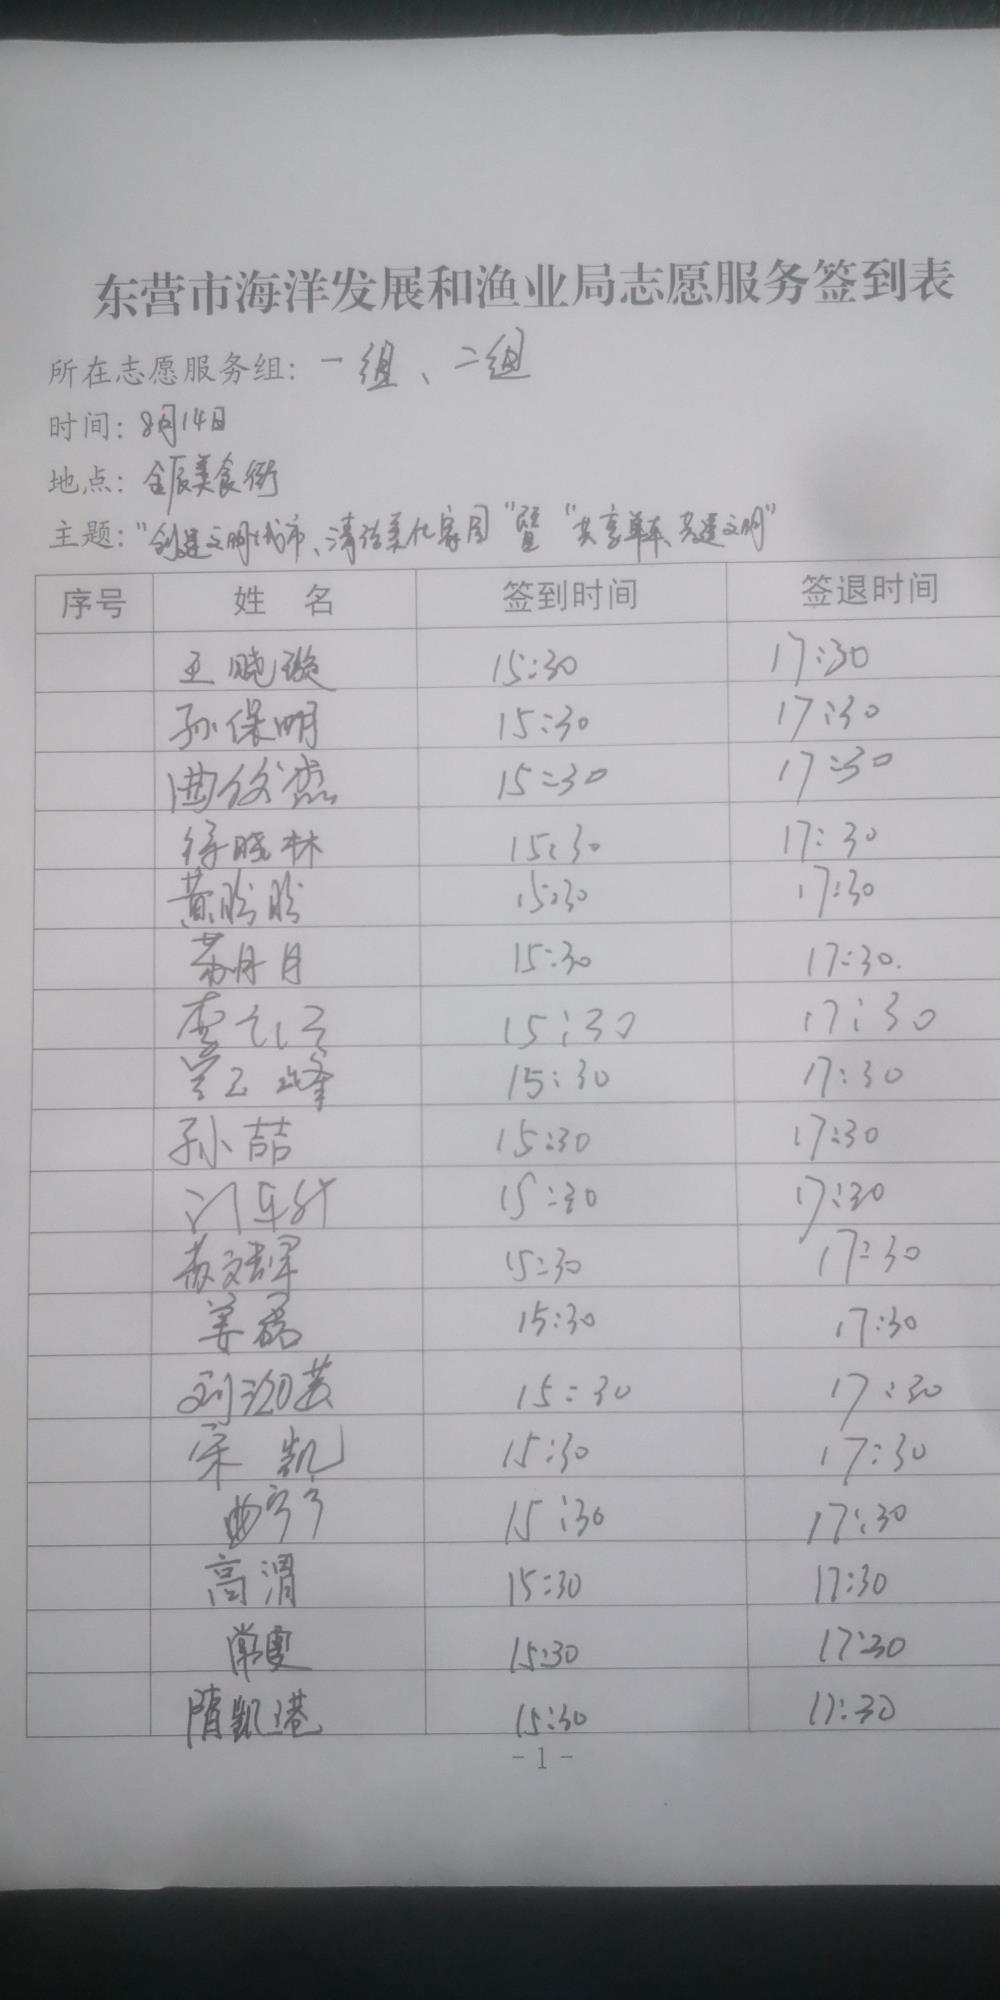 东营市海洋发展和渔业局志愿服务签到表
所在志愿服务组：一组、二组
时间：8月14日
地点：金辰美食街
主题："创建文明城市、清洁美化家园"暨"共享单车、共建文明"
序号 姓 名 签到时间 签退时间
王晓璇 15:30 17:30
孙保明 15:30 17:30
曲俊杰 15:30 17:30
徐晓林 15:30 17:30
黄盼盼 15:30 17:30
苏丹丹 15:30 17:30
李红 15:30 17:30
峰 15:30 17:30
孙喆 15:30 17:30
15:30 17:30
苏文 15:30 17:30
姜 15:30 17:30
刘 15:30 17:30
宋 凯 15:30 17:30
曲宁宁 15:30 17:30
高渭 15:30 17:30
常雯 15:30 17:30
隋凯港 15:30 17:30
- 1 -